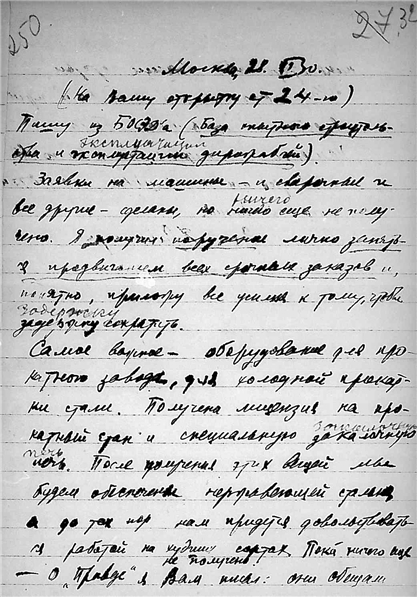 250
27.32
Москва, 28.II 30.
(На Вашу открытку от 24-го)
Пишу из БОСЭ'а (База опытного строитель-
эксплуатации
ства и эксплоатации дирижаблей).
Заявки на машины – и сварочные и
ничего
все другие – сделаны, но ничего еще не полу-
чено. Я получил поручение лично занять-
ся продвиганием всех срочных заказов и,
понятно, приложу все усилия к тому, чтобы
задержку
задержку сократить.
Самое важное – оборудование для про-
катного завода, для холодной прокат-
ки стали. Получена лицензия на про-
закалочную
катный стан и специальную закалочную
печь
печь. После получения этих вещей мы
будем обеспечены нержавеющей сталью,
а до тех пор нам придется довольствовать-
ся работой на худших сортах. Пока ничего еще
не получено!
– О "Правде" я Вам писал: они обещали